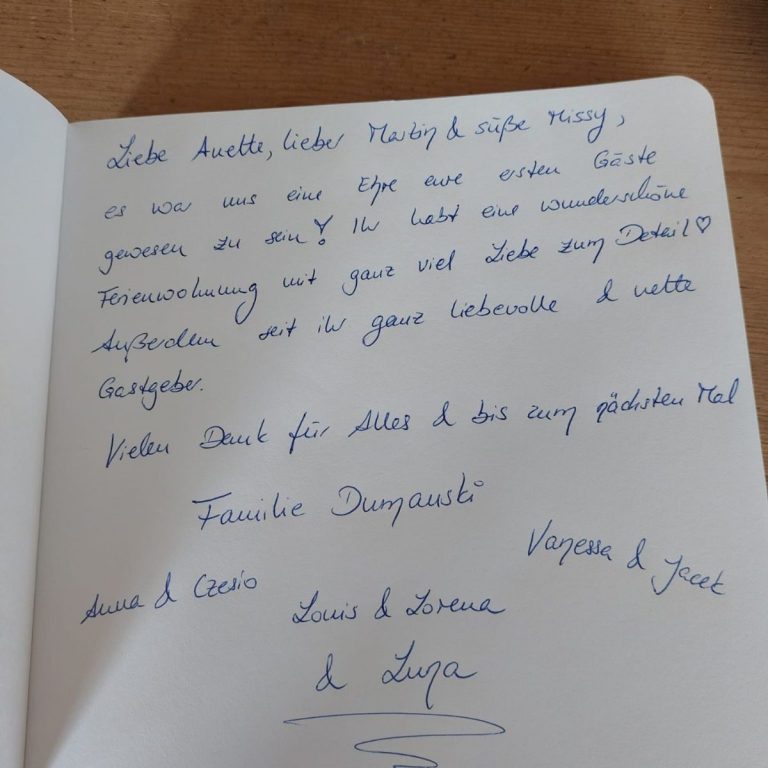 Liebe Anette, lieber Martin & süße Missy,
es war uns eine Ehre eure ersten Gäste
gewesen zu sein! Ihr habt eine wunderschöne
Ferienwohnung mit ganz viel Liebe zum Detail ♡
Außerdem seit ihr ganz liebevolle & nette
Gastgeber.
Vielen Dank für Alles & bis zum nächsten Mal
Familie Dumanski
Vanessa & Jacek
Anna & Czesio
Louis & Lorena
& Luna